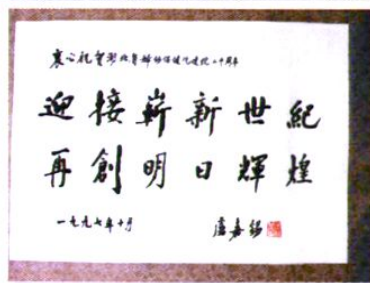 衷心祝贺湖北省妇幼保健院建院二十周年
迎接嶄新世紀
再創明日輝煌
一九九七年十月
盧嘉錫